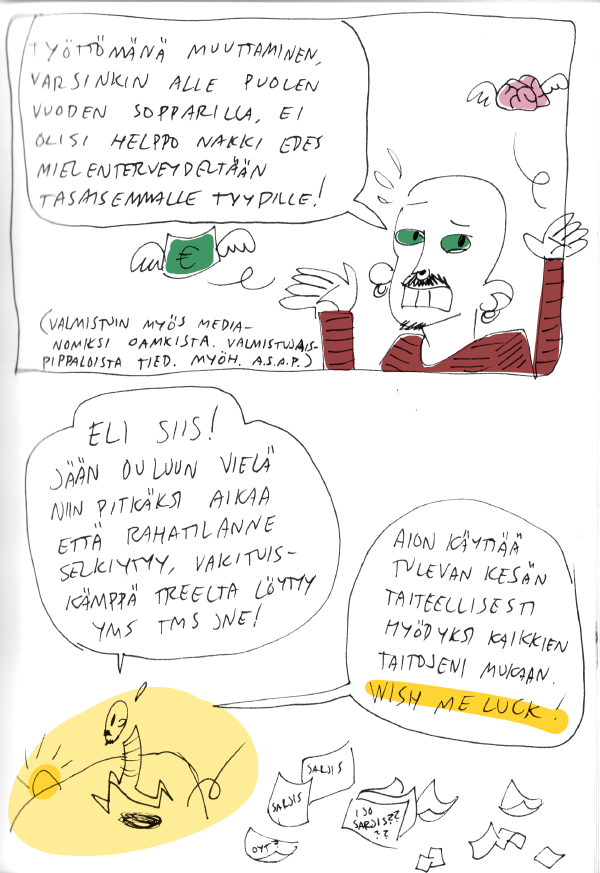 TYÖTTÖMÄNÄ MUUTTAMINEN,
VARSINKIN ALLE PUOLEN
VUODEN SOPPARILLA, EI
OLISI HELPPO NAKKI EDES
MIELENTERVEYDELTÄÄN
TASAISEMMALLE TYYPILLE!
€
(VALMISTUIN MYÖS MEDIA-
NOMIKSI OAMKISTA. VALMISTUJAIS-
PIPPALOISTA TIED. MYÖH. A.S.A.P.)
ELI SIIS!
JÄÄN OULUUN VIELÄ
NIIN PITKÄKSI AIKAA
ETTÄ RAHATILANNE
SELKIYTYY, VAKITUIS-
KÄMPPÄ TREELTA LÖYTYY
YMS TMS JNE!
AION KÄYTTÄÄ
TULEVAN KESÄN
TAITEELLISESTI
HYÖDYKSI KAIKKIEN
TAITOJENI MUKAAN.
WISH ME LUCK!
SARJIS
SARJIS
1 JO
SARJIS??
??